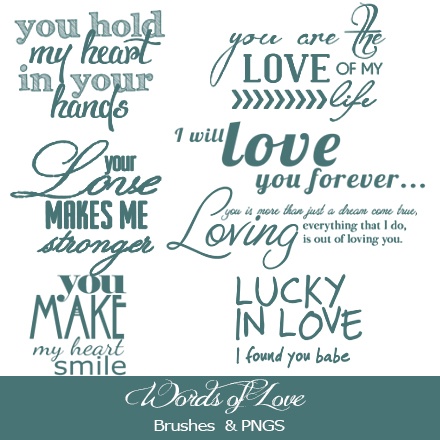 you hold
my heart
in your
hands
you are the
LOVE OF MY
life
I will love
you forever...
your
Love
MAKES ME
stronger
you is more than just a dream come true,
Loving everything that I do,
is out of loving you.
you
MAKE
my heart
smile
LUCKY
IN LOVE
I found you babe
Words of Love
Brushes & PNGS